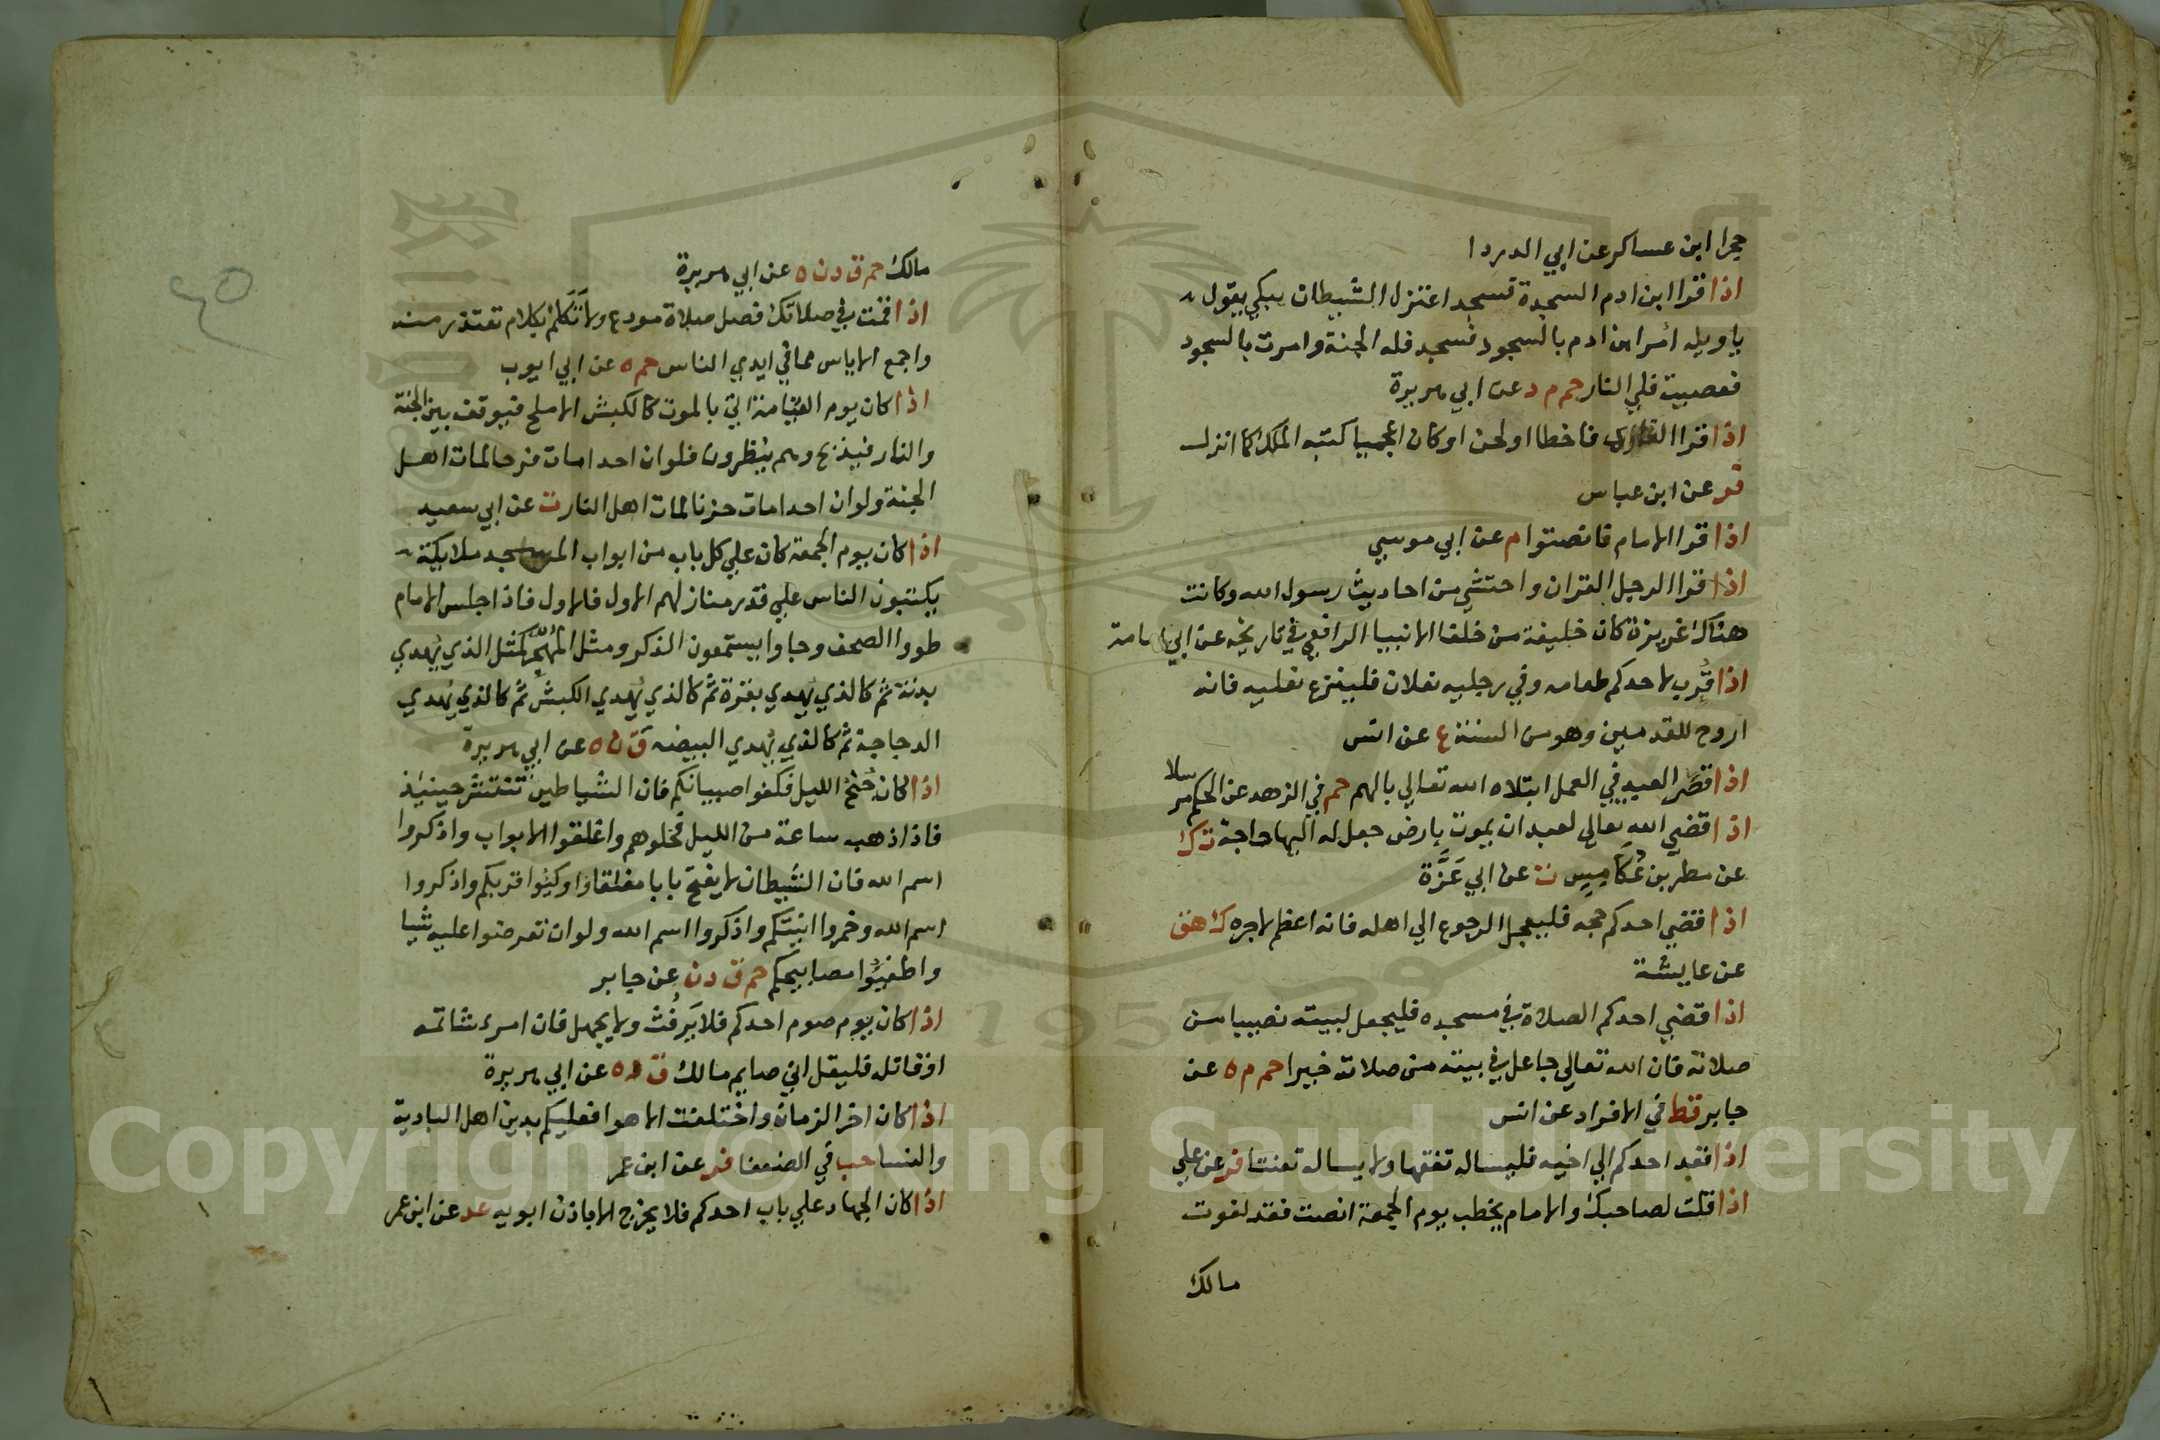 حجرا ابن عساكر عن ابي الدردا
اذا قرا ابن ادم السجدة فسجد اعتزل الشيطان يبكي يقول
ياويله امر ابن ادم بالسجود فسجد فله الجنة وامرت بالسجود
فعصيت فلي النار حم م د عن ابي هريرة
اذا قرا القاري فاخطا او لحن او كان اعجميا كتبه الملك كما انزل
فر عن ابن عباس
اذا قرا الامام فانصتوا م عن ابي موسي
اذا قرا الرجل القران واحتشي من احاديث رسول الله وكانت
هناك غريزة كان خليفة من خلفا الانبيا الرافعي في تاريخه عن ابي امامة
اذا قرب لاحدكم طعامه وفي رجليه نعلان فلينزع نعليه فانه
اروح للقدمين وهو من السنة ع عن انس
اذا قصر العبد في العمل ابتلاه الله تعالي بالهم حم في الزهد عن الحكم مرسلا
اذا قضي الله تعالي لعبد ان يموت بارض جعل له اليها حاجة ت ك
عن مطر بن عكامس ت عن ابي عزة
اذا قضي احدكم حجه فليعجل الرجوع الي اهله فانه اعظم لاجره ك هق
عن عايشة
اذا قضي احدكم الصلاة في مسجده فليجعل لبيته نصيبا من
صلاته فان الله تعالي جاعل في بيته من صلاته خيرا حم م ه عن
جابر قط في الافراد عن انس
اذا قعد احدكم الي اخيه فليساله تفقها ولا يساله تعنتا فر عن علي
اذا قلت لصاحبك والامام يخطب يوم الجمعة انصت فقد لغوت
مالك
مالك حم ق د ن ه عن ابي هريرة
اذا قمت في صلاتك فصل صلاة مودع ولا تكلم بكلام تعتذر منه
واجمع الاياس مما في ايدي الناس حم ه عن ابي ايوب
اذا كان يوم القيامة اتي بالموت كالكبش الاملح فيوقف بين الجنة
والنار فيذبح وهم ينظرون فلو ان احدا مات فرحا لمات اهل
الجنة ولو ان احدا مات حزنا لمات اهل النار ت عن ابي سعيد
اذا كان يوم الجمعة كان علي كل باب من ابواب المسجد ملايكة
يكتبون الناس علي قدر منازلهم الاول فالاول فاذا جلس الامام
طووا الصحف وجاوا يستمعون الذكر ومثل المهجر كمثل الذي يهدي
بدنة ثم كالذي يهدي بقرة ثم كالذي يهدي الكبش ثم كالذي يهدي
الدجاجة ثم كالذي يهدي البيضه ق ن ه عن ابي هريرة
اذا كان جنح الليل فكفوا صبيانكم فان الشياطين تنتشر حينيذ
فاذا ذهب ساعة من الليل فخلوهم واغلقوا الابواب واذكروا
اسم الله فان الشيطان لا يفتح بابا مغلقا واوكيوا قربكم واذكروا
اسم الله وخمروا انيتكم واذكروا اسم الله ولو ان تعرضوا عليه شيا
واطفيوا مصابيحكم حم ق د ن عن جابر
اذا كان يوم صوم احدكم فلا يرفث ولا يجهل فان امرء شاتمه
او قاتله فليقل اني صايم مالك ق د ه عن ابي هريرة
اذا كان اخر الزمان واختلفت الاهوا فعليكم بدين اهل البادية
والنسا حب في الضعفا فر عن ابن عمر
اذا كان الجهاد علي باب احدكم فلا يخرج الا باذن ابويه عد عن ابن عمر
Copyright © King Saud University
1957